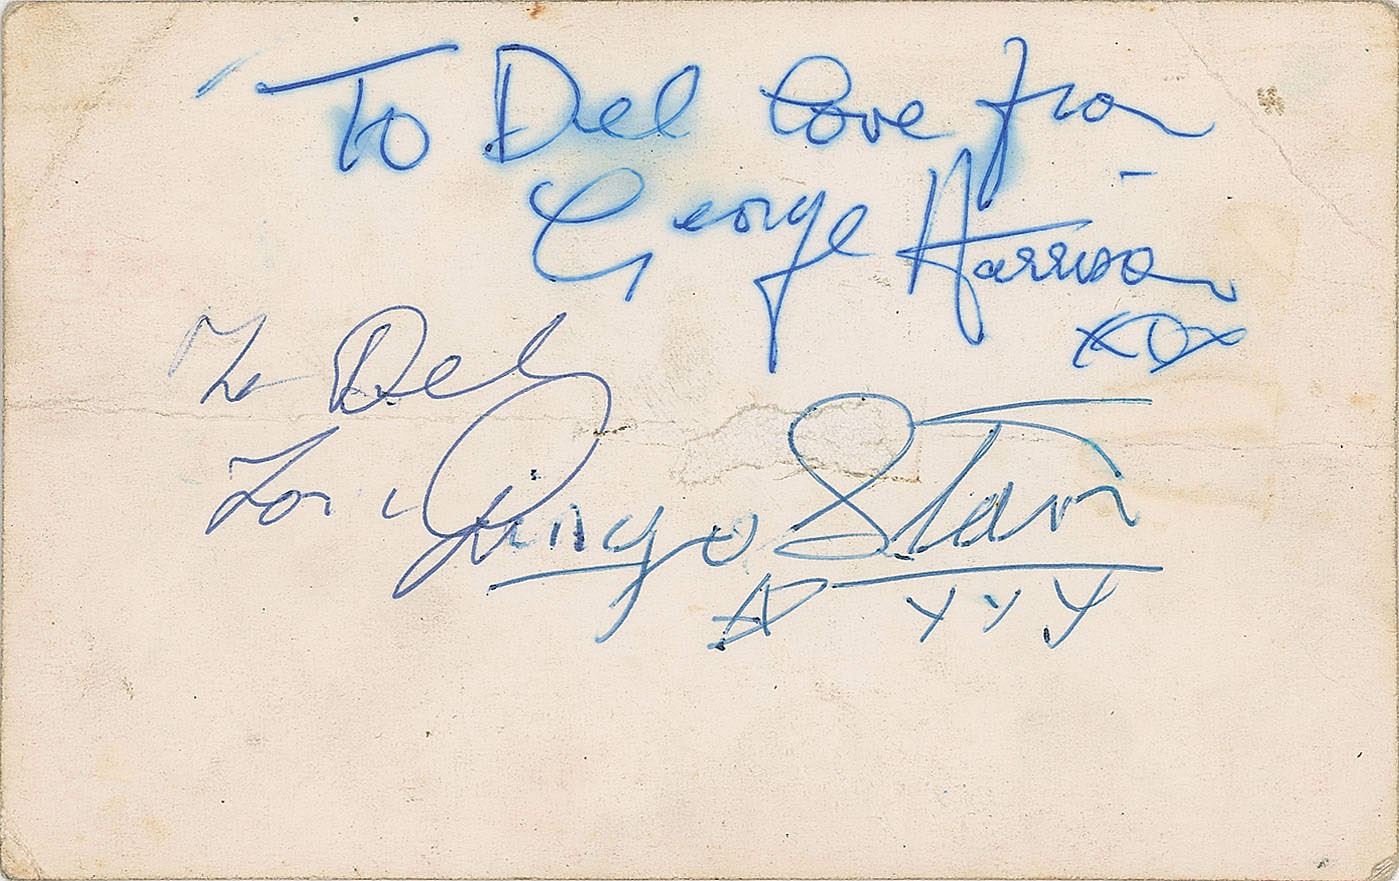 To Del love from
George Harrison
xox
To Del
Love
Ringo Starr
xxx